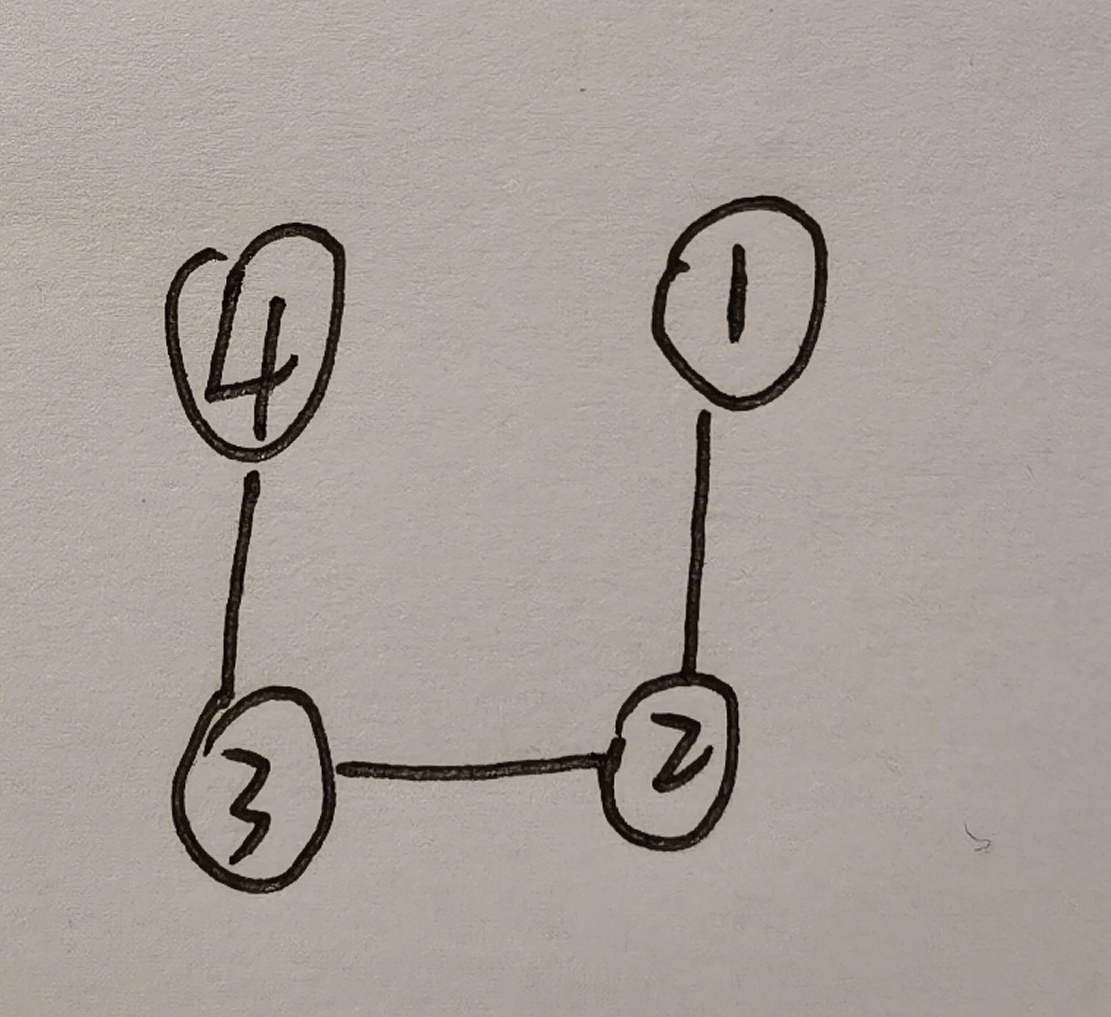 4 1
3 2